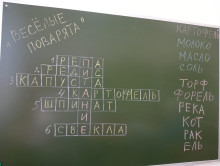 "ВЕСЁЛЫЕ
ПОВАРЯТА"
1РЕПА
2РЕДИС
3КАПУСТА
4КАРТОФЕЛЬ
5ШПИНАТ
И
6СВЕКЛА
КАРТОФЕЛЬ
МОЛОКО
МАСЛО
СОЛЬ
ТОРФ
ФОРЕЛЬ
РЕКА
КОТ
РАК
ЕЛЬ